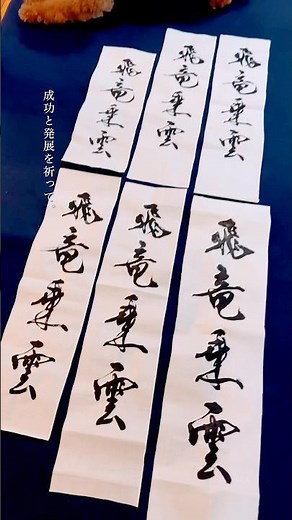 成功と発展を祈って。
飛竜乗雲
飛竜乗雲
飛竜乗雲
飛竜乗雲
飛竜乗雲
飛竜乗雲